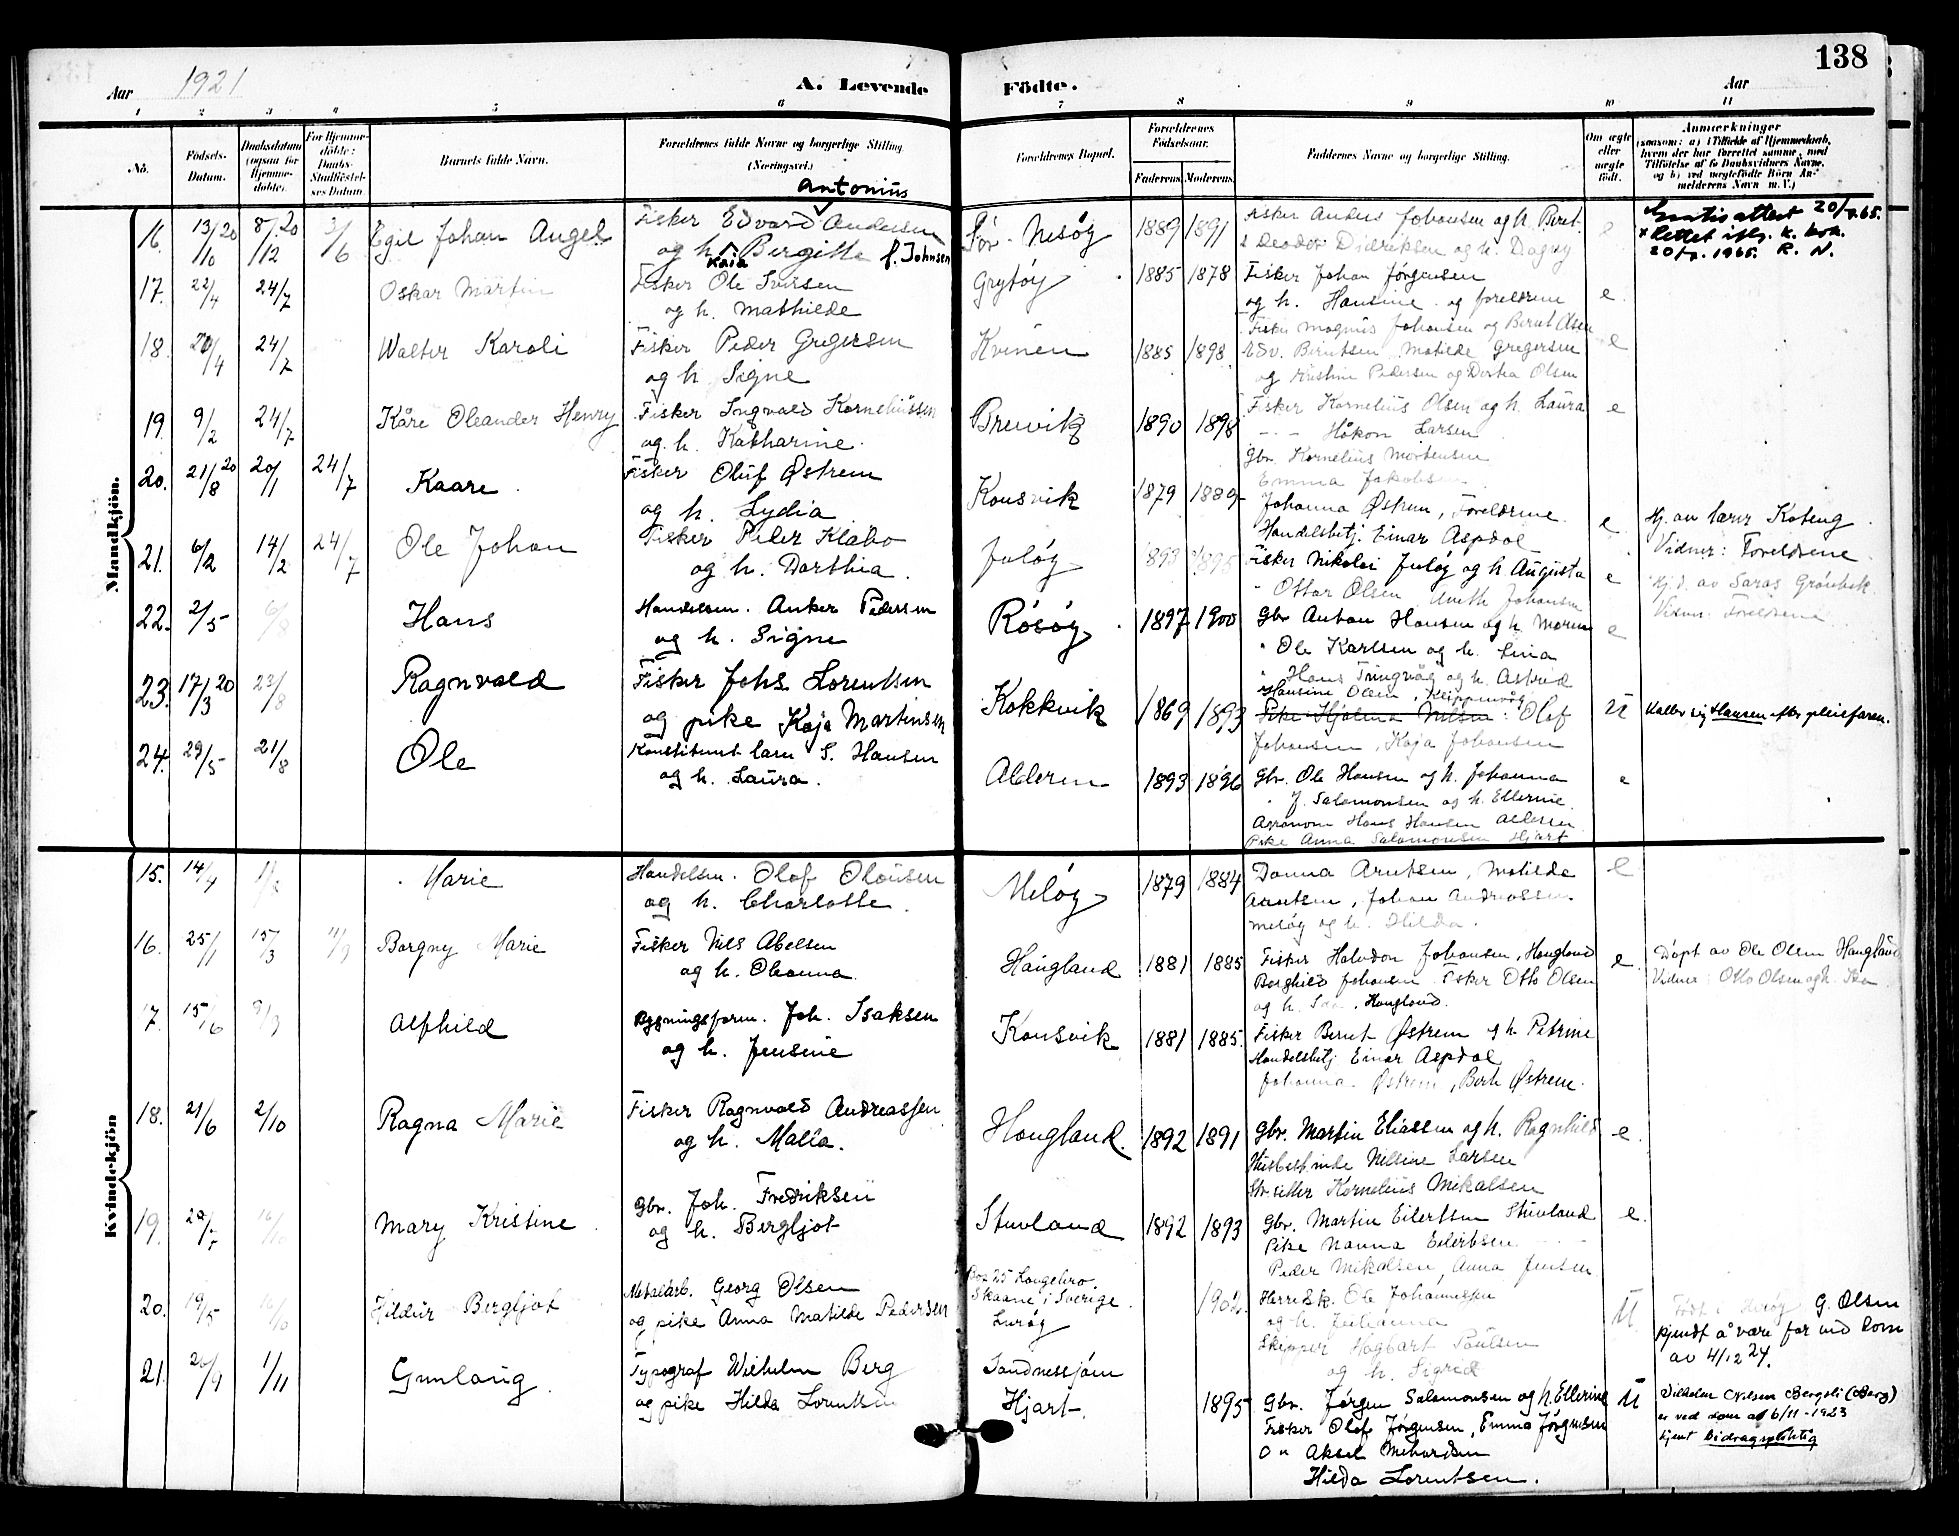 138
Aar 1921
A. Levende
Födte.
Aar
1 2 3 4 5 6 7 8 9 10 11
No.
Födsels-Datum.
Daabsdatum (ogsaa for Hjemmedöbte).
For Hjemmedöbte: Daabs-Stadfæstelses Datum
Barnets fulde Navn.
Forældrenes fulde Navne og borgerlige Stilling (Næringsvei.)
Forældrenes Bopæl.
Forældrenes Födselsaar.
Faderens. Moderens.
Faddernes Navne og borgerlige Stilling.
Om ægte eller uægte födt.
Anmærkninger
(saasom: a) i Tilfælde af Hjemmedaab, hvem der har forrettet samme, med Tilföielse af to Daabsvidners Navne, og b) ved uægtefödte Börn Anmelderens Navn m. V.)
Mandkjön.
Antonius
16. 13/10 20 8/12 20 3/6 Egil Johan Angel Fisker Edvard Andersen
og h. Kaja Bergitte f. Johnsen
Før. Nesøy 1889 1891 Fisker Anders Johansen og h. Berit.
Didriksen og h. Dagny
Gratis attest 20/ 65.
Rettet iflg. k. bok.
1965. R. N.
17. 22/4 24/7 Oskar Martin Fisker Ole Iversen
og h. Mathilde
Grytøy 1885 1878 Fisker Johan Jørgensen
og h. Hansine og foreldrene e.
18. 20/4 24/7 Walter Karoli Fisker Peder Gregersen
og h. Signe
Kvinen 1885 1898 Fisker Magnus Johansen og Bernt Olsen e
Edv. Berntsen Matilde Gregersen
og Kristine Pedersen og Dortea Olsen
19. 9/2 24/7 Kåre Oleander Henry Fisker Ingvald Korneliussen
og h. Katharine.
Breivik 1890 1898 Fisker Kornelius Olsen og h. Laura e
- - Håkon Larsen
Gbr. Kornelius Mortensen
Emma Jakobsen
20. 21/8 20 20/1 24/7 Kaare. Fisker Oluf Østrem
og h. Lydia
Konsvik 1879 1889 Johanna Østrem, Foreldrene. e
Handelsbetj. Einar Aspdal
Hj. av lærer Koteng.
Vidner: Foreldrene
21. 6/2 14/2 24/7 Ole Johan Fisker Peder Klabo
og h. Dorthia.
Juløy 1893 1895 Fisker Nikolai Juløy og h. Augusta e
" Ottar Olsen Johansen
Hj.d. av Saras Grønbek
Vidner: Foreldrene
22. 2/5 6/8 Hans Handelsm. Anker Pedersen
og h. Signe
Røsøy. 1897 1900 Gbr Anton Hansen og h. Maren e
" Ole Karlsen og h. Lina
" Hans Tringvåg og h. Astrid
23. 17/3 20 23/8 Ragnvald Fisker Johs Lorentsen
og pike Kaja Martinsen
Kokkvik 1869 1893 Hansine Olsen, Klippinvåg
Pike Hjalma Nilsen. Olaf
Johansen, Kaja Johansen
U Kaller sig Hansen efter pleiefaren.
24. 29/5 21/8 Ole Konstituert lærer S. Hansen
og h. Laura.
Alderen 1893 1896 Gbr. Ole Hansen og h. Johanna e
" J. Salomonsen og h. Ellerine.
Agronom Hans Hansen Alderen
Pike Anna Salomonsen Hjart
Kvindekjön
15. 14/4 Marie Handelsm. Olaf Olausen
og h. Charlotte.
Meløy 1879 1884 Danna Arntsen, Matilde e
Arntsen, Johan Andreassen
Meløy og h. Hilda.
16. 25/1 13/3 11/9 Borgny Marie Fisker Nils Abelsen
og h. Oleanna.
Haugland 1881 1885 Fisker Halvdan Johansen, Haugland e.
Borghild Johansen Fisker Otto Olsen
og h. Haugland.
Døpt av Ole Olsen Haugland
Vidner: Otto Olsen og h.
17. 15/6 Alfhild Bygningsform. Joh. Isaksen
og h. Jensine
Konsvik 1881 1885. Fisker Bernt Østrem og h. Petrine
Handelsbetj Einar Aspdal
Johanna Østrem, Berh Østrem.
18. 21/6 2/10 Ragna Marie Fisker Ragnvald Andreassen
og h. Malla.
Haugland. 1892 1891 Gbr. Martin Eliassen og h. Ragnhild e.
Husbestinde Nilsine Larsen
Kornelius Mikalsen
19. 16/10 Mary Kristine Gbr. Joh. Fredriksen
og h. Bergljot
Stuvland 1892 1893 Gbr. Martin Eilertsen Stuvland e.
Pike Nanna Eilertsen
Peder Mikalsen, Anna Jensen
20. 19/5 16/10 Hildur Bergljot Metalarb. Georg Olsen
og pike Anna Matilde Pedersen
Box 25 Langebro.
Skaane i Sverige.
Lurøy
Herredsk. Ole Johannesen
og h. Julianna
Skipper Hagbart Paulsen
og h. Sigrid
U. G. Olsen
kjendt å være far ved dom
av 4/12 24.
21. 20/9 1/11 Gunlaug. Typograf Wilhelm Berg
og pike Hilda Lorentsen
Sandnessjøen
Hjart. 1895 Gbr. Jørgen Salomonsen og h. Ellerine
Fisker Olaf Jørgensen, Emma Jørgensen
Aksel
Hilda Lorentsen.
U Vilhelm Nilsen Bergsli (Berg)
er ved dom af 6/11-1923
kjent bidragspliktig